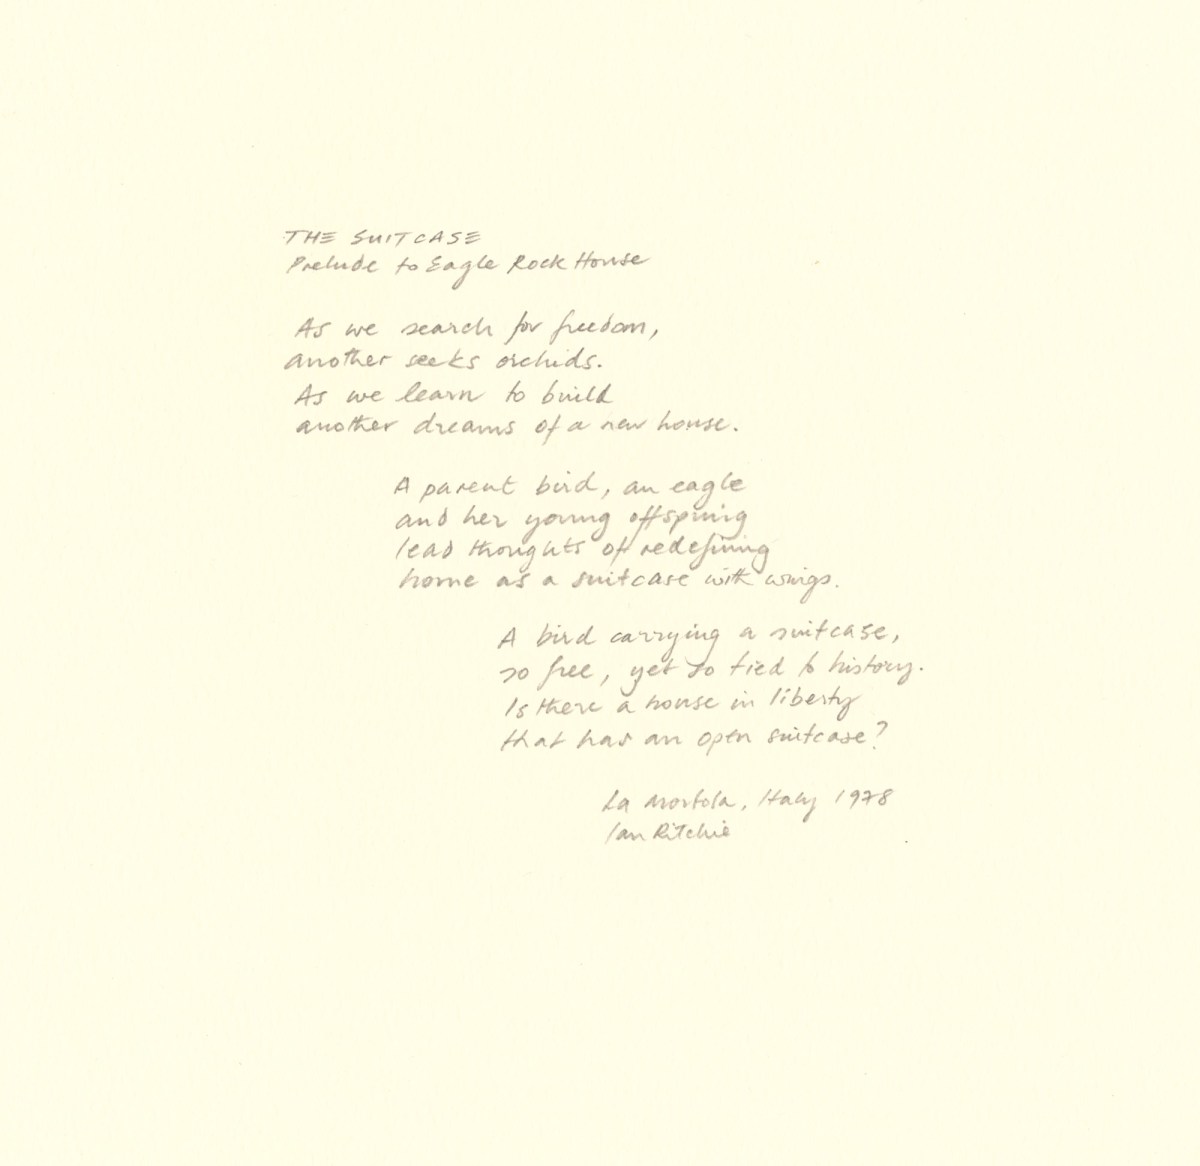 THE SUITCASE
Prelude to Eagle Rock House
As we search for freedom,
another seeks orchids.
As we learn to build
another dreams of a new house.
A parent bird, an eagle
and her young offspring
lead thoughts of redefining
home as a suitcase with wings.
A bird carrying a suitcase,
so free, yet so tied to history.
Is there a house in liberty
that has an open suitcase?
La Mortola, Italy 1978
Ian Ritchie